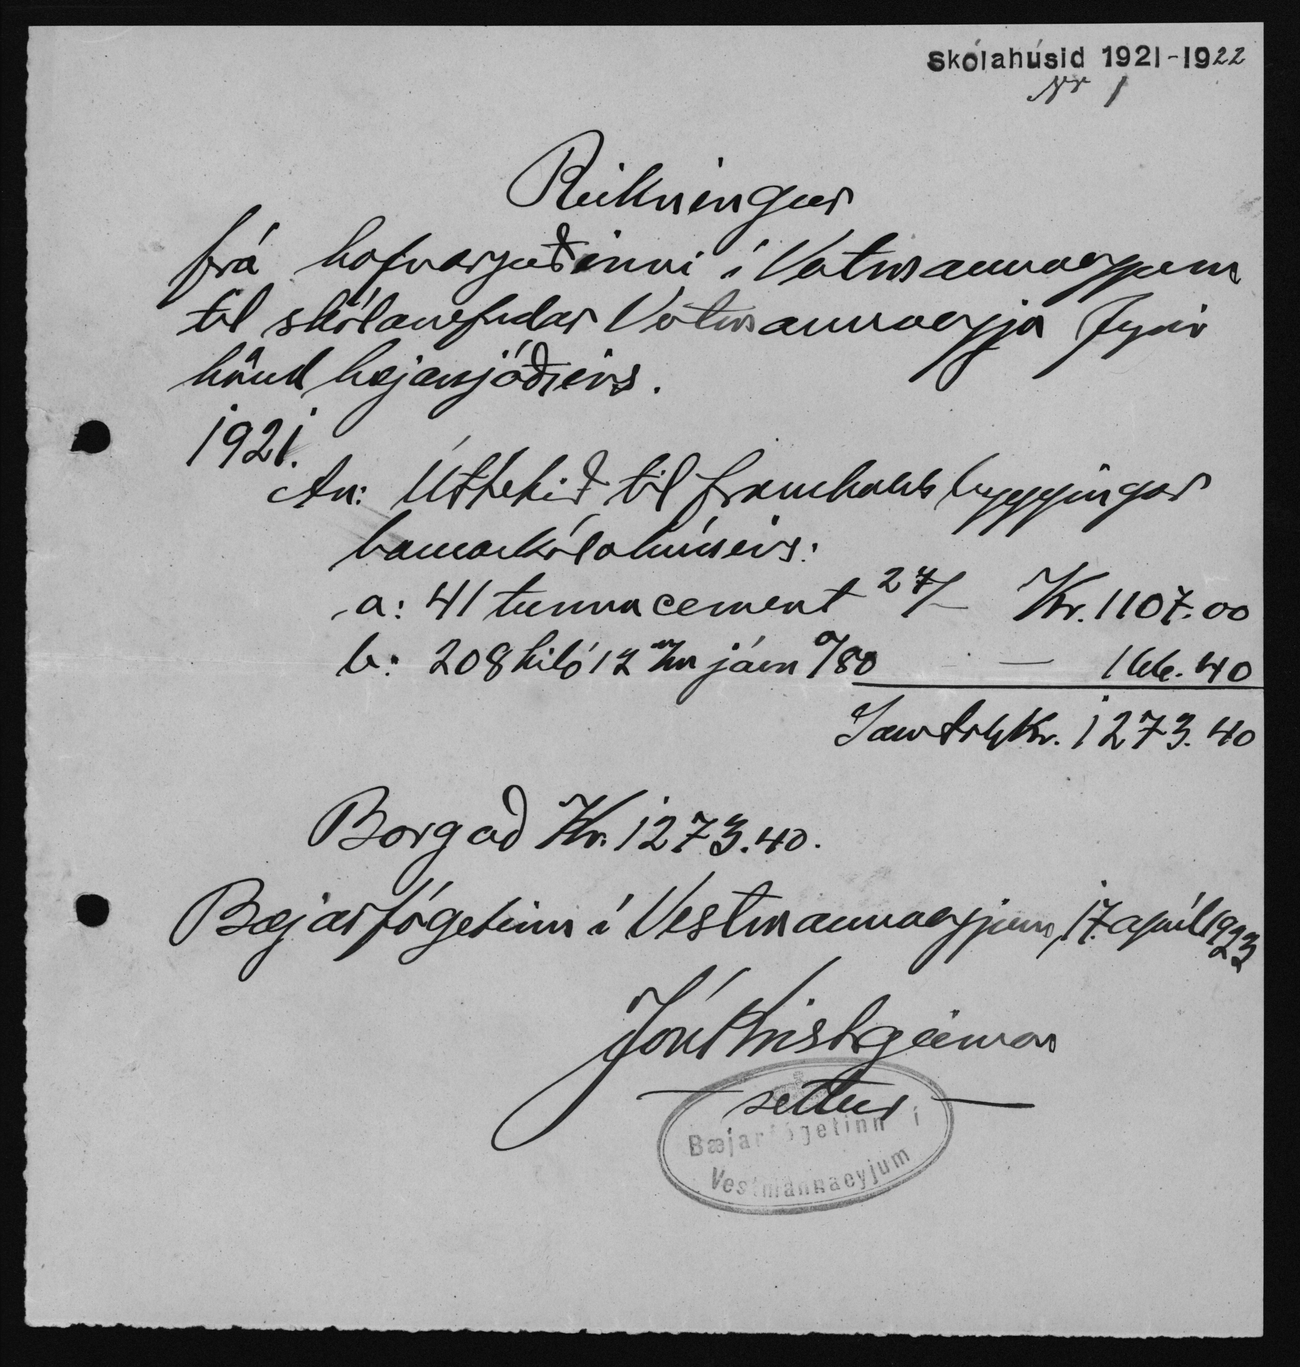 Skólahúsid 1921-1922
Nr 1
Reikningur
frá hafnargerðinni í Vestmannaeyjum
til skólanefndar Vestmannaeyja fyrir
hönd bæjarsjóðsins.
1921.
An: Úttekið til framhalds byggingar
barnaskólahúsins:
a: 41 tunna cement 27/- Kr. 1107.00
b: 208 kiló 12 m/m járn 0/80 — 166.40
Samtals Kr. 1273.40
Borgað Kr. 1273.40.
Bæjarfógetinn í Vestmannaeyjum, 17. apríl 1923
settur
Bæjarfógetinn í
Vestmannaeyjum